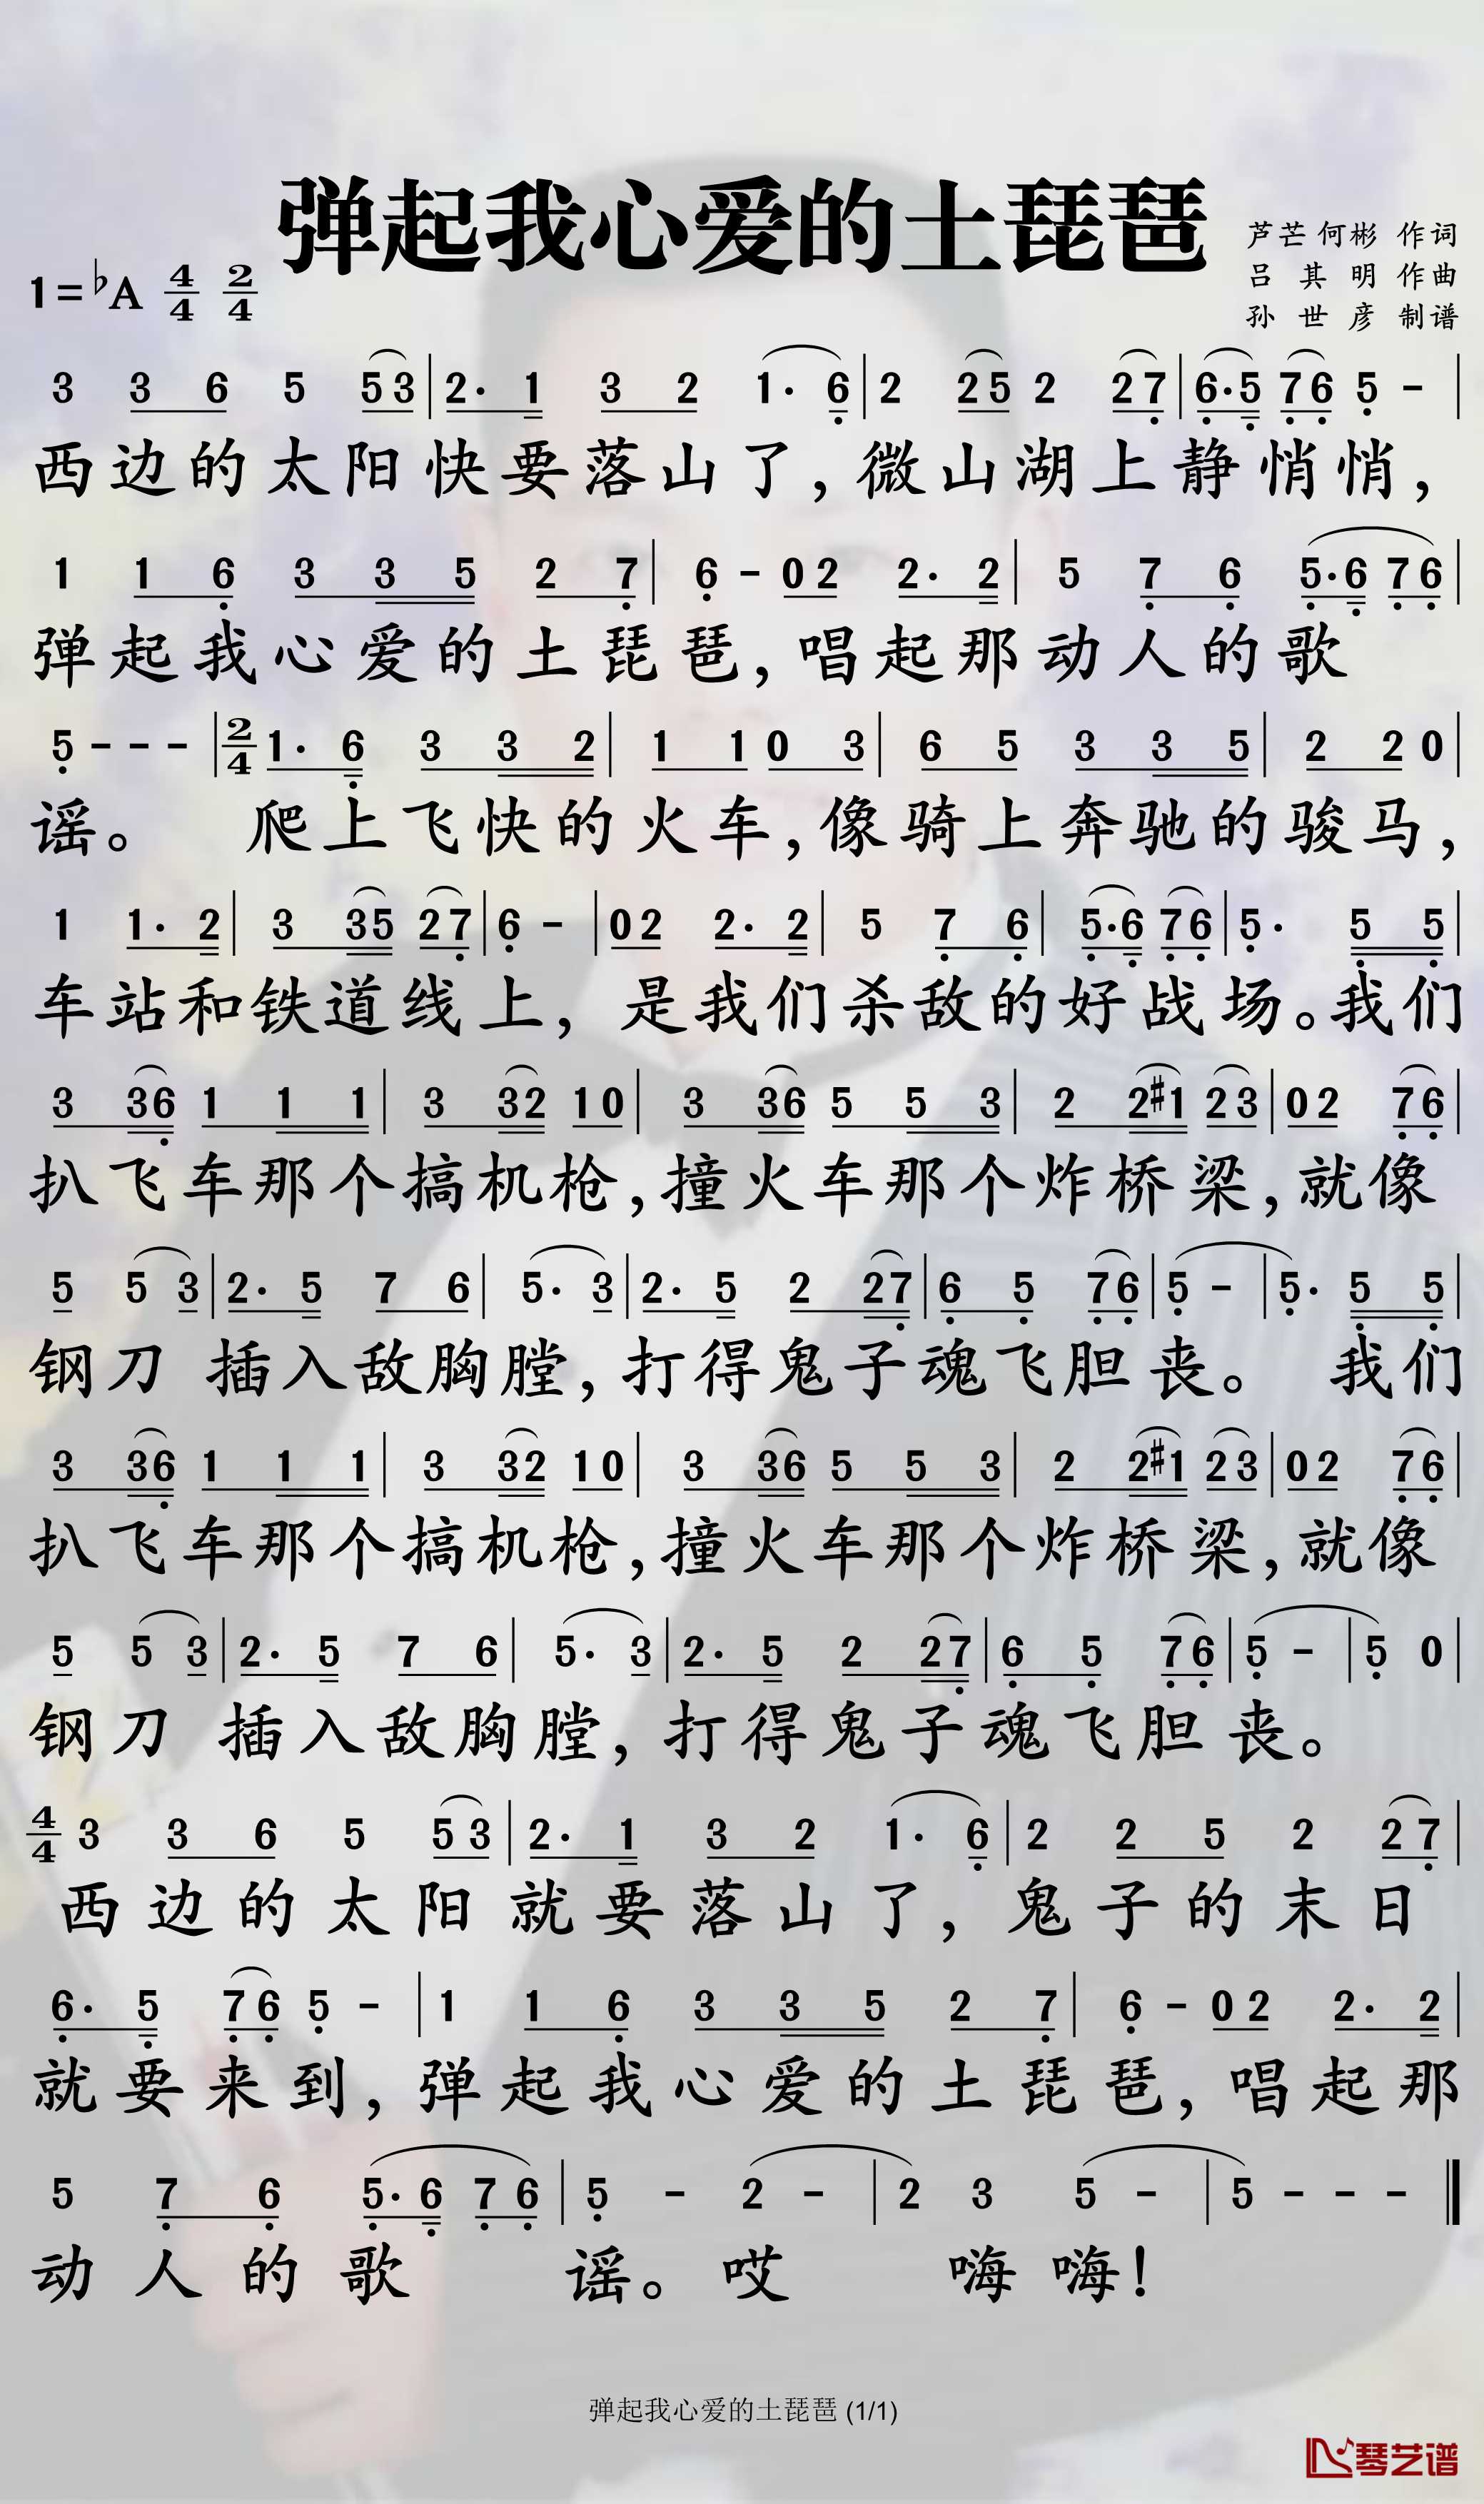 弹起我心爱的土琵琶
芦芒 何彬 作词
吕其明 作曲
孙世彦 制谱
1=♭A 4/4 2/4
3 3 6 5 5 3 | 2· 1 3 2 1· 6 | 2 2 5 2 2 7 | 6· 5 7 6 5 - |
西边的太阳快要落山了,微山湖上静悄悄,
1 1 6 3 3 5 2 7 | 6 - 0 2 2· 2 | 5 7 6 5· 6 7 6 |
弹起我心爱的土琵琶,唱起那动人的歌
5 - - - | 2/4 1· 6 3 3 2 | 1 1 0 3 | 6 5 3 3 5 | 2 2 0 |
谣。 爬上飞快的火车,像骑上奔驰的骏马,
1 1· 2 | 3 3 5 2 7 | 6 - | 0 2 2· 2 | 5 7 6 | 5· 6 7 6 | 5· 5 5 |
车站和铁道线上, 是我们杀敌的好战场。我们
3 3 6 1 1 1 | 3 3 2 1 0 | 3 3 6 5 5 3 | 2 2 #1 2 3 | 0 2 7 6 |
扒飞车那个搞机枪,撞火车那个炸桥梁,就像
5 5 3 | 2· 5 7 6 | 5· 3 | 2· 5 2 2 7 | 6 5 7 6 | 5 - | 5· 5 5 |
钢刀 插入敌胸膛,打得鬼子魂飞胆丧。 我们
3 3 6 1 1 1 | 3 3 2 1 0 | 3 3 6 5 5 3 | 2 2 #1 2 3 | 0 2 7 6 |
扒飞车那个搞机枪,撞火车那个炸桥梁,就像
5 5 3 | 2· 5 7 6 | 5· 3 | 2· 5 2 2 7 | 6 5 7 6 | 5 - | 5 0 |
钢刀 插入敌胸膛,打得鬼子魂飞胆丧。
4/4 3 3 6 5 5 3 | 2· 1 3 2 1· 6 | 2 2 5 2 2 7 |
西边的太阳就要落山了,鬼子的末日
6· 5 7 6 5 - | 1 1 6 3 3 5 2 7 | 6 - 0 2 2· 2 |
就要来到,弹起我心爱的土琵琶,唱起那
5 7 6 5· 6 7 6 | 5 - 2 - | 2 3 5 - | 5 - - - ‖
动人的歌 谣。哎 嗨嗨!
弹起我心爱的土琵琶 (1/1)
琴艺谱